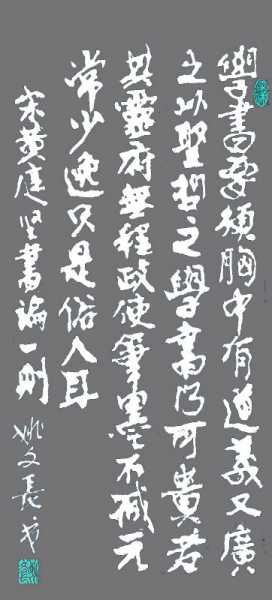 學書要須胸中有道義又廣
之以聖哲之學書乃可貴若
其靈府無程政使筆墨不減元
常少逸只是俗人耳
宋黃庭坚書論一則
姚文長书